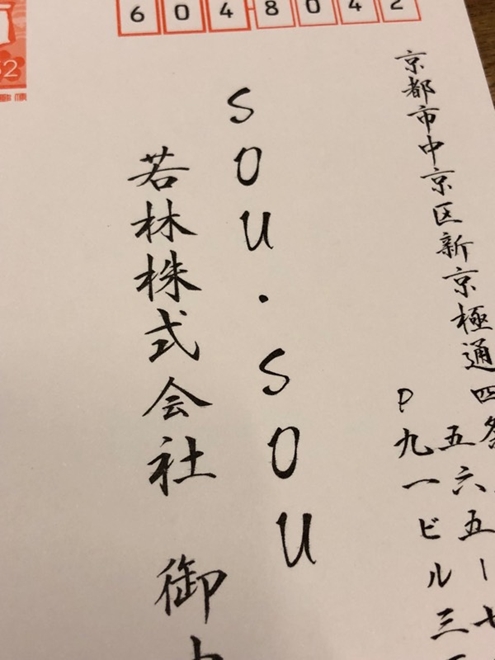 6048042
京都市中京区新京極通四条
五六五ー七
P九一ビル三
SOU・SOU
若林株式会社 御